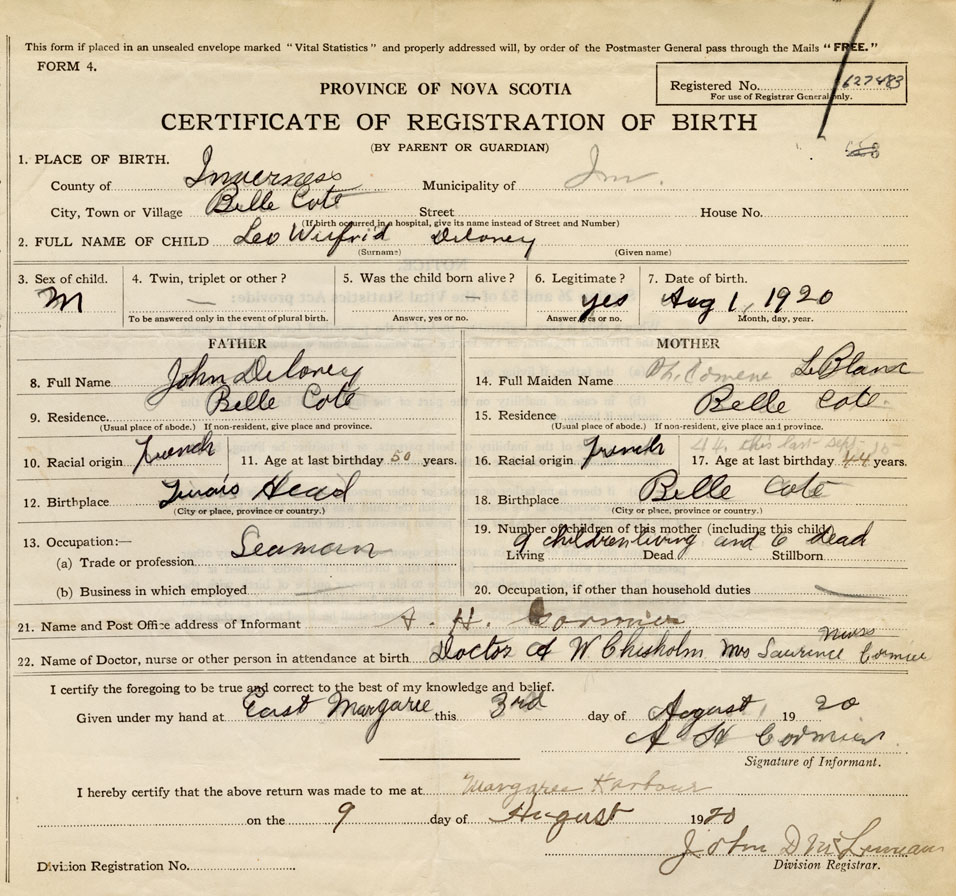 This form if placed in an unsealed envelope marked "Vital Statistics" and properly addressed will, by order of the Postmaster General pass through the Mails "FREE."
FORM 4.
Registered No. 627483
For use of Registrar General only.
PROVINCE OF NOVA SCOTIA
CERTIFICATE OF REGISTRATION OF BIRTH
(BY PARENT OR GUARDIAN)
1. PLACE OF BIRTH.
County of Inverness Municipality of Inv.
City, Town or Village Belle Cote Street House No.
(If birth occurred in a hospital, give its name instead of Street and Number)
2. FULL NAME OF CHILD Leo Wilfrid Deloney
(Surname) (Given name)
3. Sex of child. 4. Twin, triplet or other? 5. Was the child born alive? 6. Legitimate? 7. Date of birth.
M — — yes Aug 1, 1920
To be answered only in the event of plural birth. Answer, yes or no. Answer, yes or no. Month, day, year.
FATHER
8. Full Name John Deloney
9. Residence. Belle Cote
(Usual place of abode.) (If non-resident, give place and province.)
10. Racial origin French 11. Age at last birthday 50 years.
12. Birthplace Head
(City or place, province or country.)
13. Occupation:—
(a) Trade or profession Seaman
(b) Business in which employed —
MOTHER
14. Full Maiden Name Philomene LeBlanc
15. Residence Belle Cote
(Usual place of abode.) (If non-resident, give place and province.)
44, this last Sept.
16. Racial origin French 17. Age at last birthday 44 years.
18. Birthplace Belle Cote
(City or place, province or country.)
19. Number of children of this mother (including this child)
9 children living and 6 dead
Living Dead Stillborn
20. Occupation, if other than household duties —
21. Name and Post Office address of Informant A. H. Cormier
Nurse
22. Name of Doctor, nurse or other person in attendance at birth Doctor W Chisholm Mrs Laurence Cormier
I certify the foregoing to be true and correct to the best of my knowledge and belief.
Given under my hand at East Margaree this 3rd day of August, 1920
A H Cormier
Signature of Informant.
I hereby certify that the above return was made to me at Margaree Harbour
on the 9 day of August 1920
John D
Division Registrar.
Division Registration No.